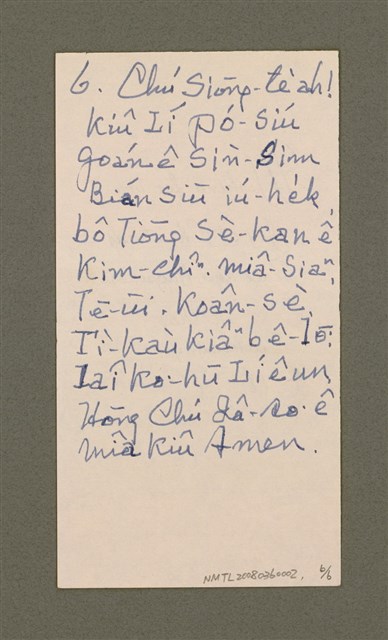 6. Chú Siōng-tè ah!
Kiû Lí pó-siú
goán ê Sìn-Sim
Bián Siū iú-he̍k,
bô Tiōng Sè-kan ê
Kim-chîⁿ. miâ-Siaⁿ,
Tē-ūi. Koân-sè,
Tì-kàu kiâⁿ bê-lō͘.
Lâi ko͘-hū Lí ê un,
Hōng Chú Iâ-so͘ ê
miâ Kiû Amen.
NMTL20080360002. 6/6